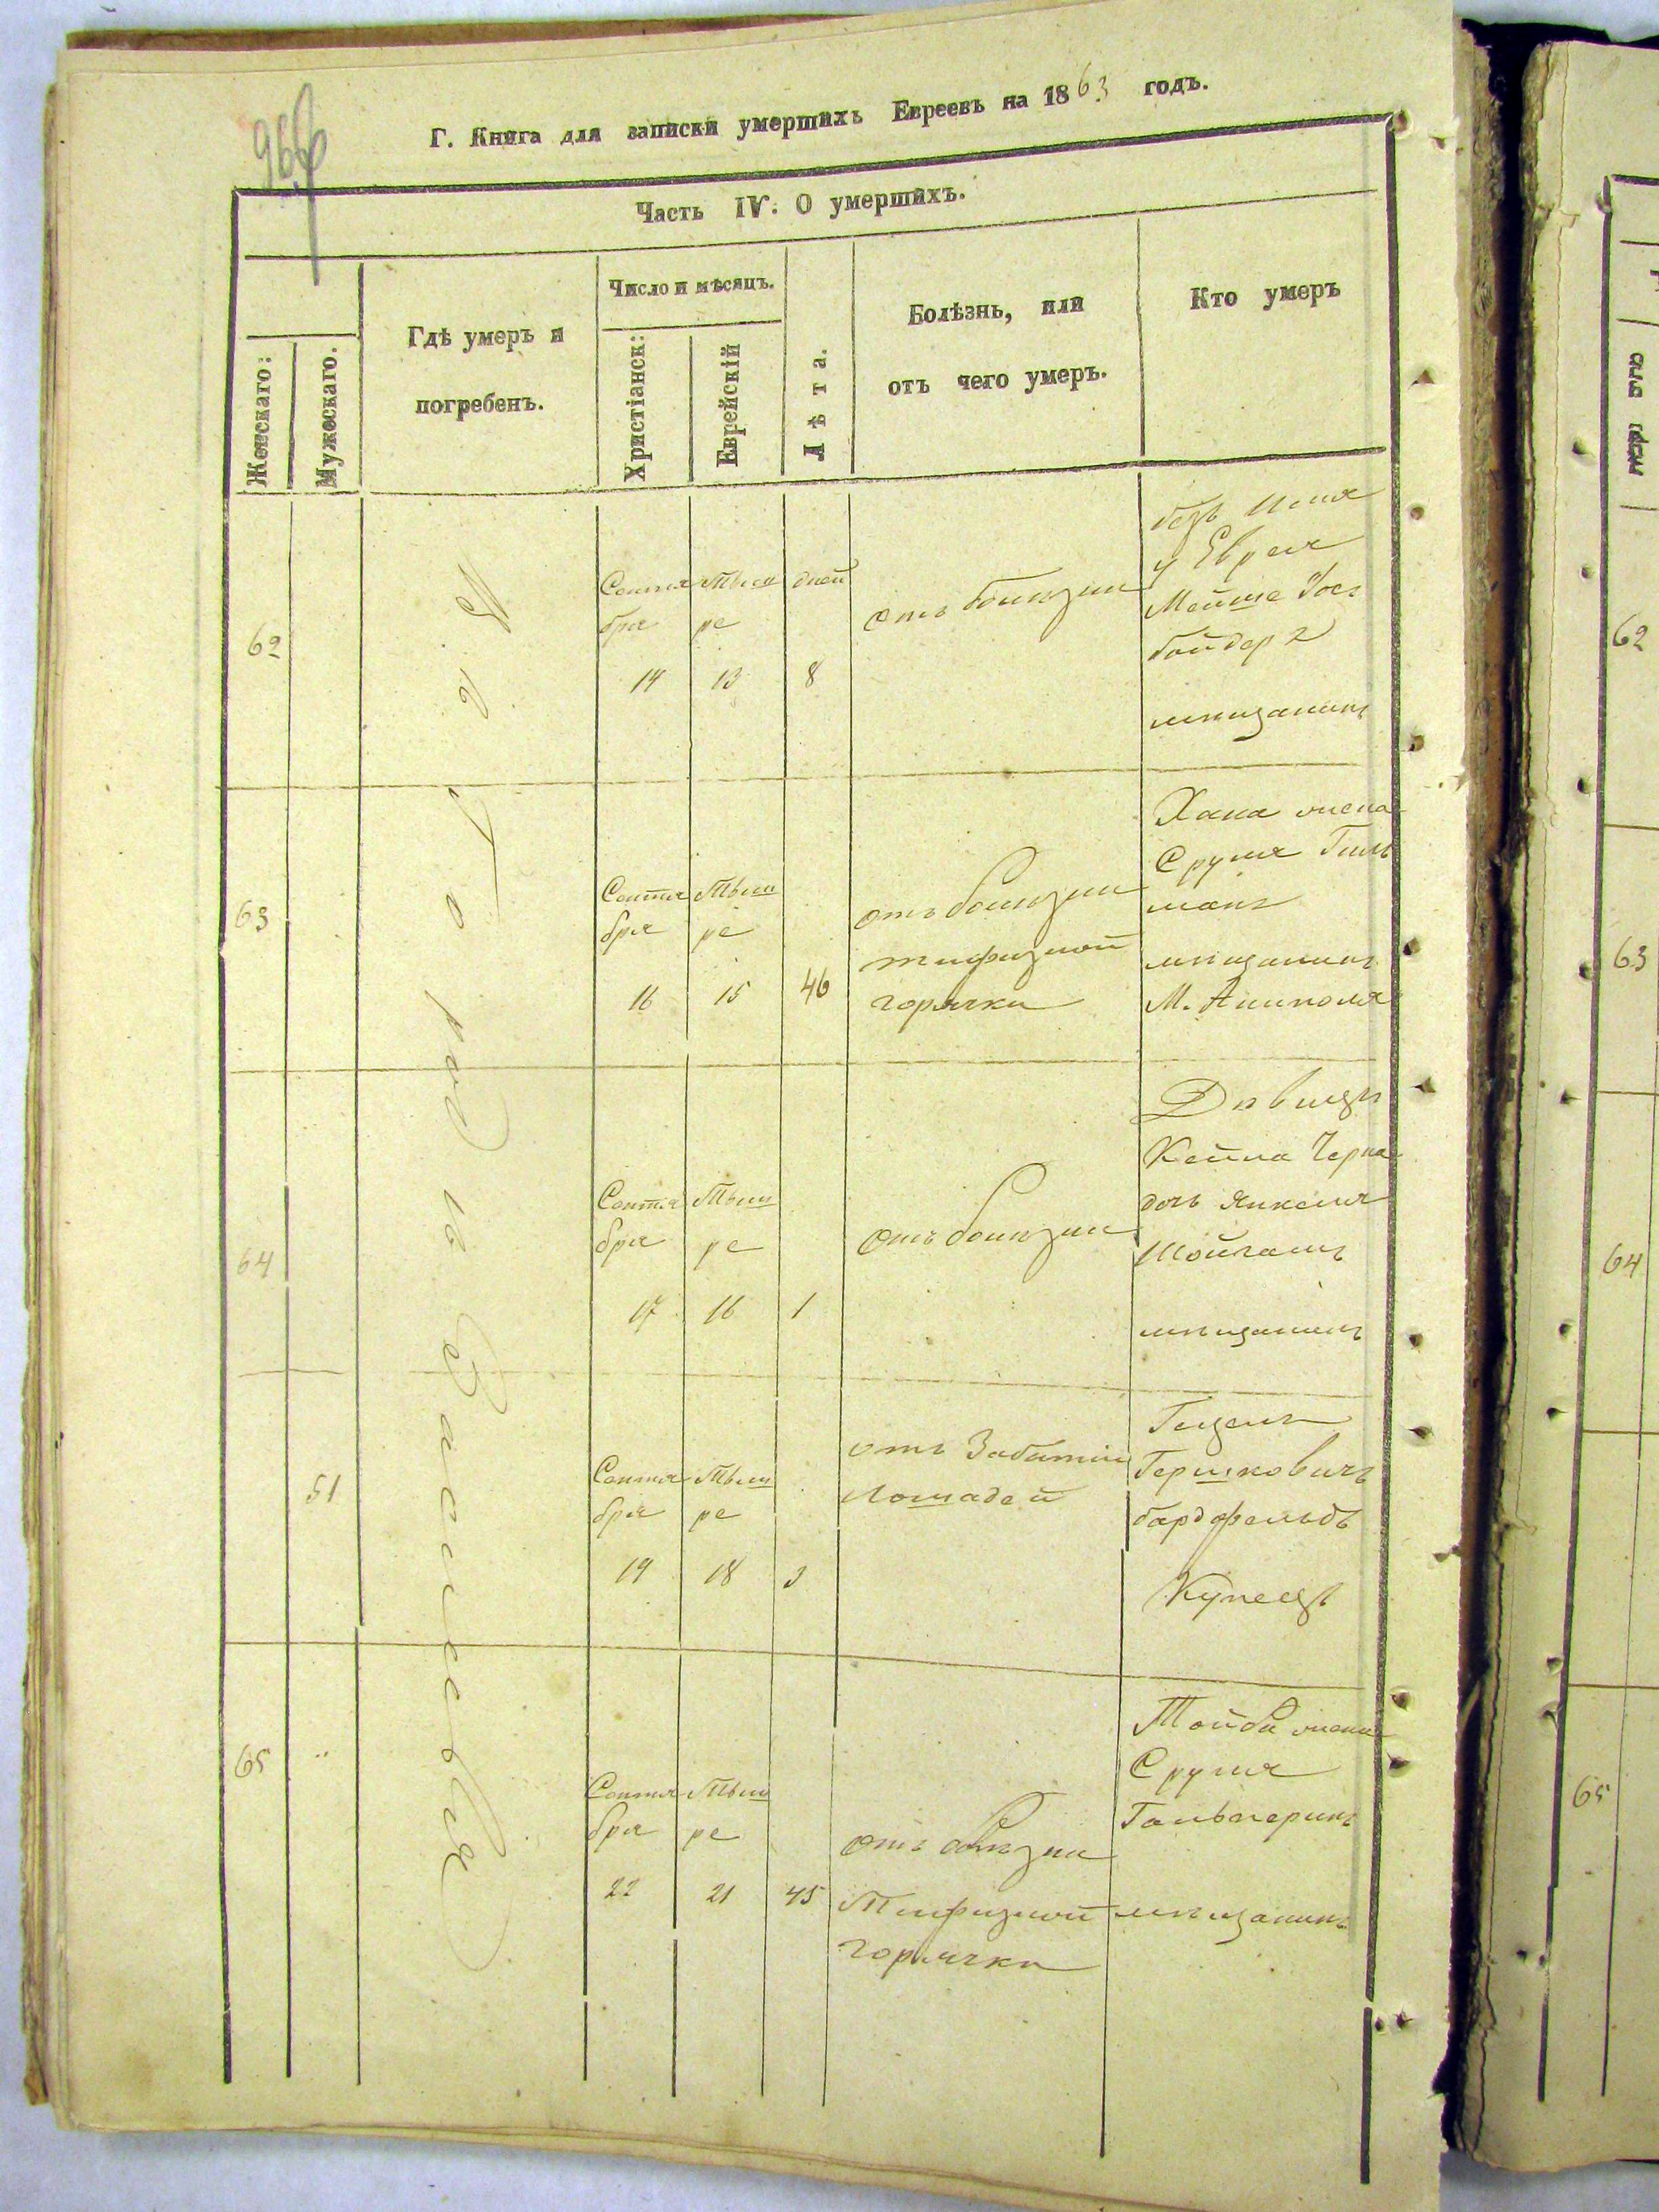 966
Г. Книга для записки умершихъ Евреевъ на 1863 годъ.
Часть IV. О умершихъ.
Женскаго:
Мужескаго.
Гдѣ умеръ и
погребенъ.
Число и мѣсяцъ.
Христіанск:
Еврейскій
Лѣта.
Болѣзнь, или
отъ чего умеръ.
Кто умеръ
въ Городѣ
62
Сентя
бря
14
Тыш
ре
13
дней
8
отъ болѣзни
безъ имя
у Еврея
Мейше
мѣщанинъ
63
Сентя
бря
16
Тыш
ре
15
46
отъ болѣзни
тифузной
горячки
Хана жена
Сруля Гиль
манъ
мѣщанинъ
М. Аннополя
64
Сентя
бря
17
Тыш
ре
16
1
отъ болѣзни
Двѣицы
Кейла Черна
дочь Янкеля
мѣщанинъ
51
Сентя
бря
19
Тыш
ре
18
3
отъ Забитій
Лошадей
Гершковичъ
бардфельдъ
Купецъ
65
Сентя
бря
22
Тыш
ре
21
45
отъ болѣзни
Тифузной
горячки
Тойба жена
Сруля
Гальперинъ
мѣщанинъ
62
63
64
65